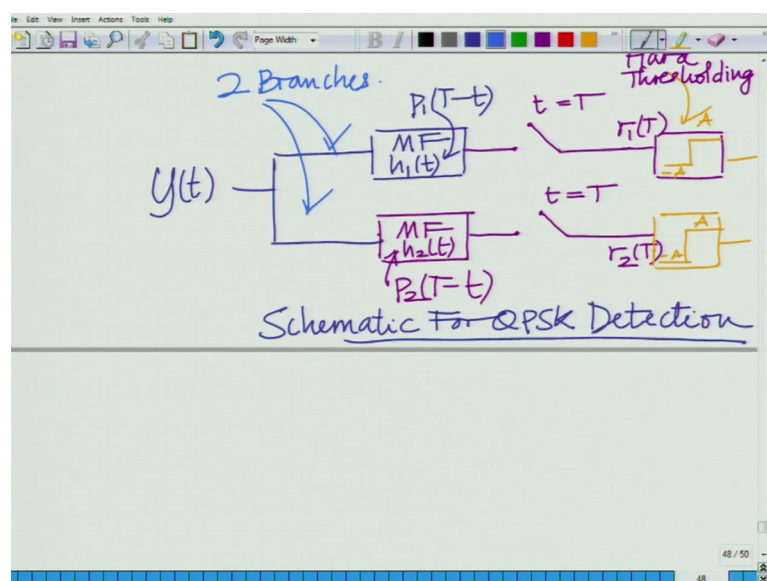 File Edit View Insert Actions Tools Help
Page Width
B I
2 Branches.
Hard
Thresholding
P₁(T-t)
t=T
r₁(T)
A
-A
MF
h₁(t)
y(t)
t=T
MF
h₂(t)
r₂(T)
A
-A
P₂(T-t)
Schematic For QPSK Detection
48 / 50
48